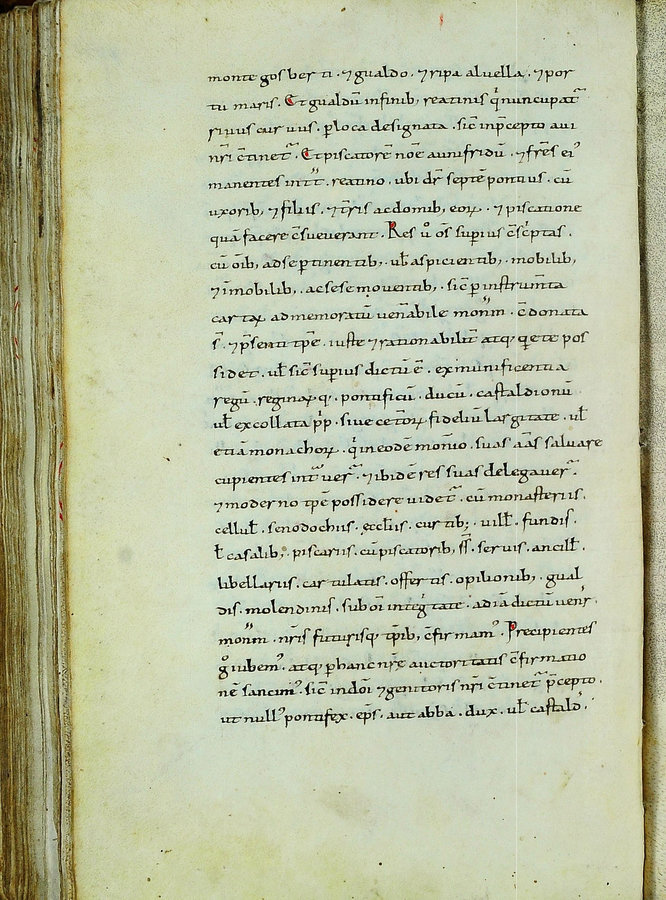 monte gosberti · ⁊ gualdo · ⁊ ripa aluella · ⁊ por
tu maris · Et gualdū in finib; reatinis q̄ nuncupat᷑
riuus curuus · p loca designata · sic̄ in p̄cepto aui
nr̄i c̄tinet᷑ · Et piscatorē nōe aunifridū · ⁊ fr̄es ei᾽
manentes in tr̄t · reatino · ubi dr̄ septē pontius · cū
uxorib; ⁊ filiis · ⁊ t̄ris ac domib; eoꝝ · ⁊ piscatione
quā facere c̄sueuerant · Res ů om̄s superius c̄sc̄ptas ·
cū om̄ib; ad se ptinentib; ul̄ aspicientib; mobilib;
⁊ īmobilib; ac sese mouentib; sic̄ p instrum̄ta
cartaꝝ ad memoratū uen̄abile mon̄m · c̄donata
s̄ · ⁊ p̄senti tp̄e · iuste ⁊ rationabilit̄ atq; q̄ete pos
sidet · ul̄ sic̄ superius dictū ē · ex munificentia
regū · reginaꝝ q; pontificū · ducū · castaldionū ·
ul̄ ex collata p̄p · siue cet̄oꝝ fideliū largitate · ul̄
etiā monachoꝝ · q̄ in eodē mon̄io · suas aīas saluare
cupientes int᷑uer᷑ · ⁊ ibidē res suas delegauer᷑ ·
⁊ moderno tp̄e possidere uidet᷑ · cū monasteriis ·
cellul̄ · senodochiis · eccl̄iis · curtib; uill̄ · fundis ·
l̄ casalib; piscariis · cū piscatorib; s̄s̄ · seruis · ancill̄ ·
libellariis · cartulatis · offertis · opilionib; · gual
dis · molendinis · sub om̄i inteḡtate · ad iā dictū uen̄ ·
mon̄m · nr̄is futurisq; tp̄ib; c̄firmam᾽ · Precipientes
g̊ iubem᾽ · atq; p hanc nr̄e auctoritatis c̄firmatio
nē sancim᾽ · sic̄ in dōi ⁊ genitoris nr̄i c̄tinet᷑ p̄cepto ·
ut null᾽ pontifex · ep̄s · aut abba · dux · ul̄ castald̄ ·